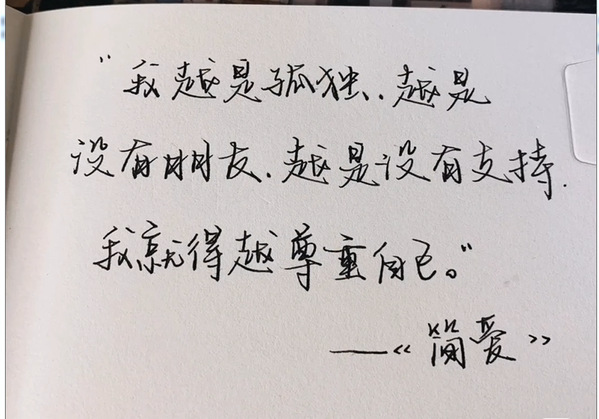 “我越是孤独、越是
没有朋友、越是没有支持.
我就得越尊重自己。”
——《简爱》